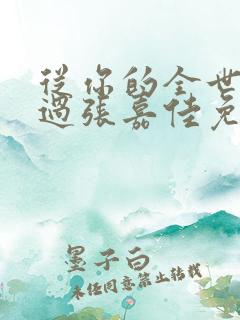 從你的全世
過張嘉佳免
墨子白
未经同意禁止转载